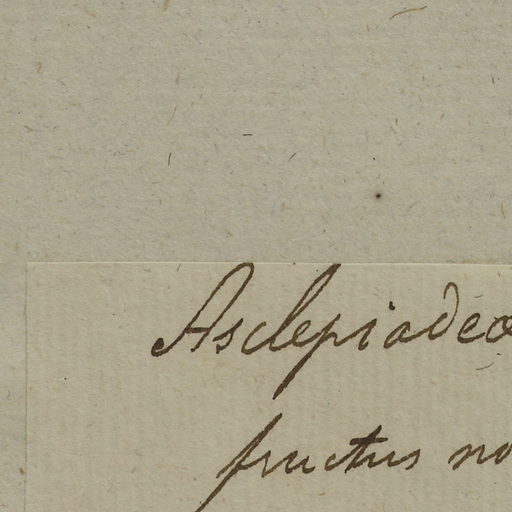 Asclepiadeæ
fructus no